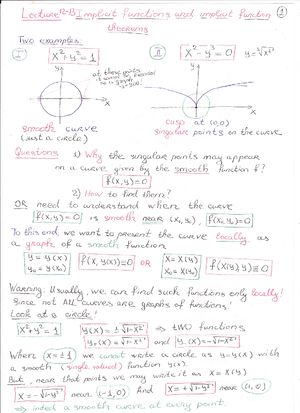 Lecture 12-13 Implicit functions and implicit function theorems ①
Two examples:
I x²+y²=1
II x²-y³=0 y=∛x²
y
x
at these points
y
x
smooth curve
(just a circle)
cusp at (0,0)
singular points on the curve
Questions 1) Why the singular points may appear
on a curve given by the smooth function f?
f(x,y)=0
2) How to find them?
OR need to understand when the curve
f(x,y)=0 is smooth near (x₀,y₀), f(x₀,y₀)=0
To this end, we want to present the curve locally as
a graph of a smooth function
y=y(x)
y₀=y(x₀)
f(x,y(x))≡0 OR
x=x(y)
x₀=x(y₀)
f(x(y),y)≡0
Warning: Usually, we can find such functions only locally!
Since not all curves are graphs of functions!
Look at a circle!
x²+y²=1
y(x)=±√1-x²
⇒ two functions
y₊(x)=√1-x² and y₋(x)=-√1-x²
When x=±1 we cannot write a circle as y=y(x) with
a smooth (single valued) function y(x).
But, near that points we may write it as x=x(y)
x=-√1-y² near (-1,0) And x=+√1-y² near (1,0)
⇒ indeed a smooth curve at every point.